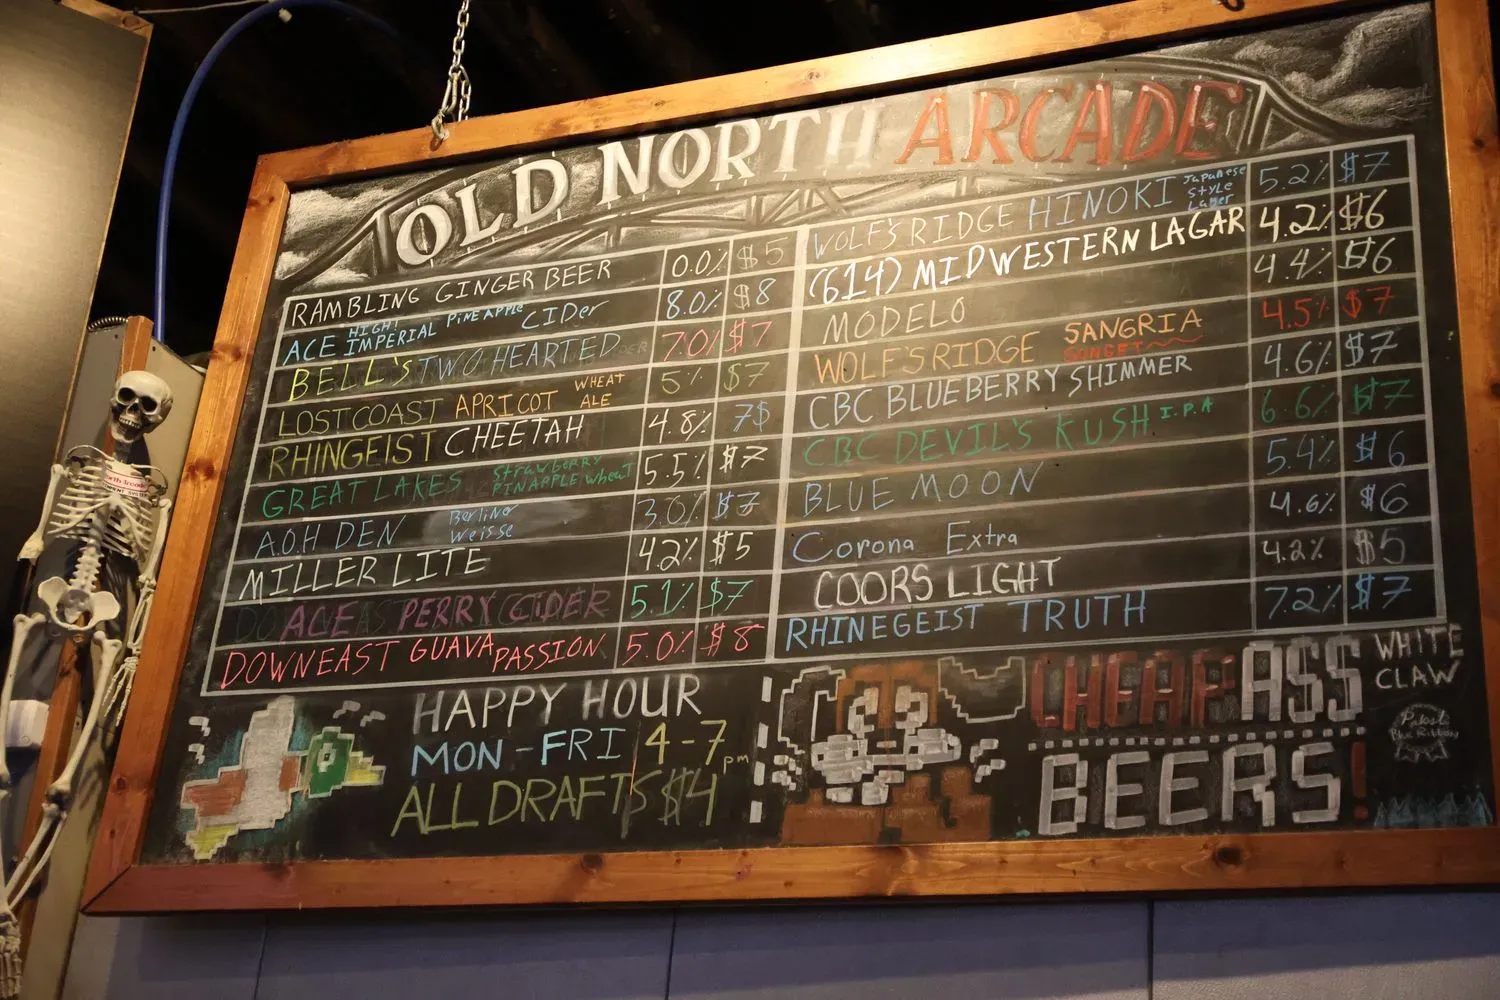 OLD NORTH ARCADE
RAMBLING GINGER BEER 0.0% $5
ACE HIGH! IMPERIAL PINEAPPLE CIDER 8.0% $8
BELL'S TWO HEARTED 7.0% $7
LOST COAST APRICOT WHEAT ALE 5% $7
RHINGEIST CHEETAH 4.8% 7$
GREAT LAKES Strawberry PINAPPLE wheat 5.5% $7
Berliner Weisse 3.0% $7
MILLER LITE 4.2% $5
ACE PERRY CIDER 5.1% $7
DOWNEAST GUAVA PASSION 5.0% $8
WOLF'S RIDGE HINOKI Japanese Style Lager 5.2% $7
(614) MIDWESTERN LAGAR 4.2% $6
MODELO 4.4% $6
WOLF'S RIDGE SANGRIA SUNSET 4.5% $7
CBC BLUEBERRY SHIMMER 4.6% $7
CBC DEVIL'S KUSH I.P.A 6.6% $7
BLUE MOON 5.4% $6
Corona Extra 4.6% $6
COORS LIGHT 4.2% $5
RHINEGEIST TRUTH 7.2% $7
HAPPY HOUR
MON - FRI 4 - 7 pm
ALL DRAFTS $4
CHEAP ASS
BEERS!
WHITE
CLAW
Pabst
Blue Ribbon